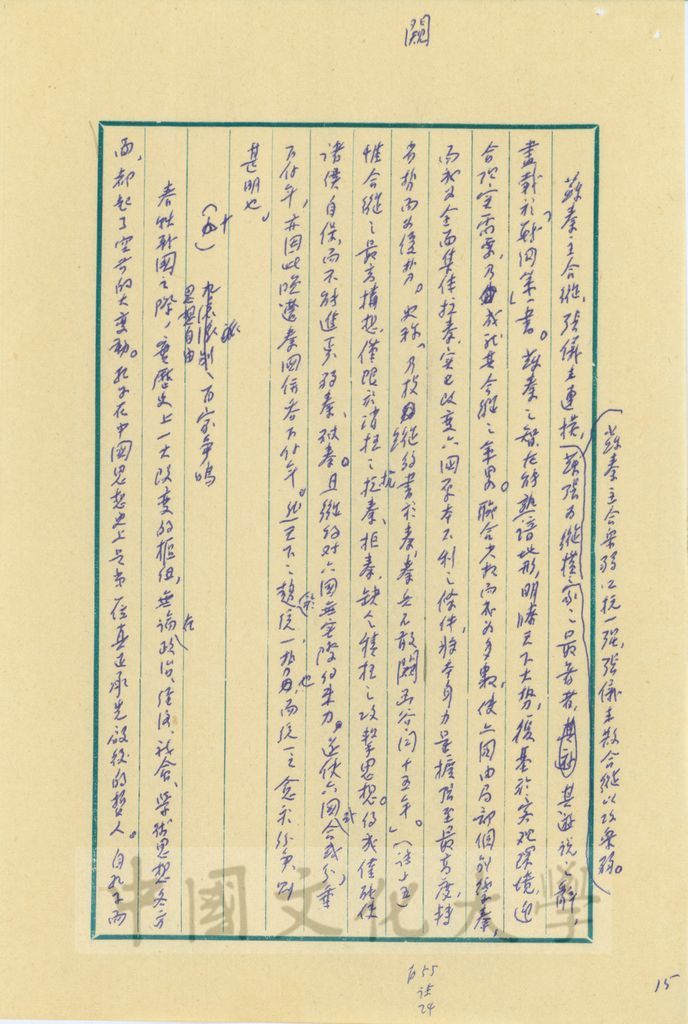 闕
蘇秦主合眾弱以抗一強，張儀主散合縱以攻眾弱。
蘇秦主合縱，張儀主連橫，蘇張為縱橫家之最著者，其游說之辭，
盡載於「戰國策」一書。蘇秦之智在能熟諳地形，明瞭天下大勢，復基於客觀環境，迎
合現實需要，乃由成就其合縱之事業。聯合六邦而成為多數，使六國由局部個別事秦，
而成為全面集体抗秦，实已改變六國原本不利之條件，將本身力量擴張至最高度，轉
劣勢而為優勢。史稱「乃投縱約書於秦，秦兵不敢闚函谷関十五年。」（註上五）
惟合縱之最高構想，僅限於消極之抗秦、拒秦，缺乏積極之攻擊思想。約成僅能使
諸侯自保，而不能進弱秦、破秦。且縱約對六國無实際約束力。遂使六國或合或分，垂
百什年，亦因此
天下之趨統一勢也，而統一之
甚明也。
（十） 九流派別、百家爭鳴
思想自由
春秋戰國之際，實歷史上一大改變的樞紐，無論在政治、經濟、社会、學術思想各方
面，都起了空前的大變動。孔子在中國思想史上是第一位真正承先啟後的哲人。自孔子而
中國文化大學
55
註
24
15